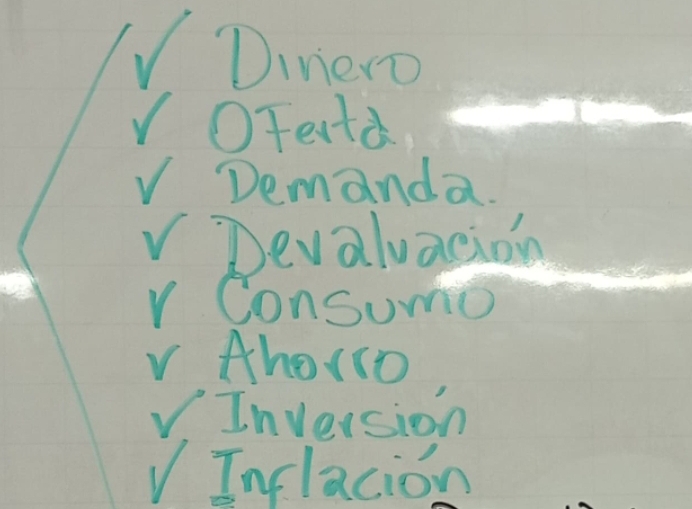 ✓ Dinero
✓ Oferta
✓ Demanda.
✓ Devaluación
✓ Consumo
✓ Ahorro
✓ Inversión
✓ Inflación